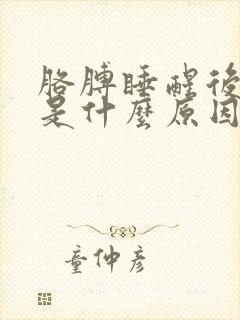 胳膊睡醒後
是什麼原因
童仲彥